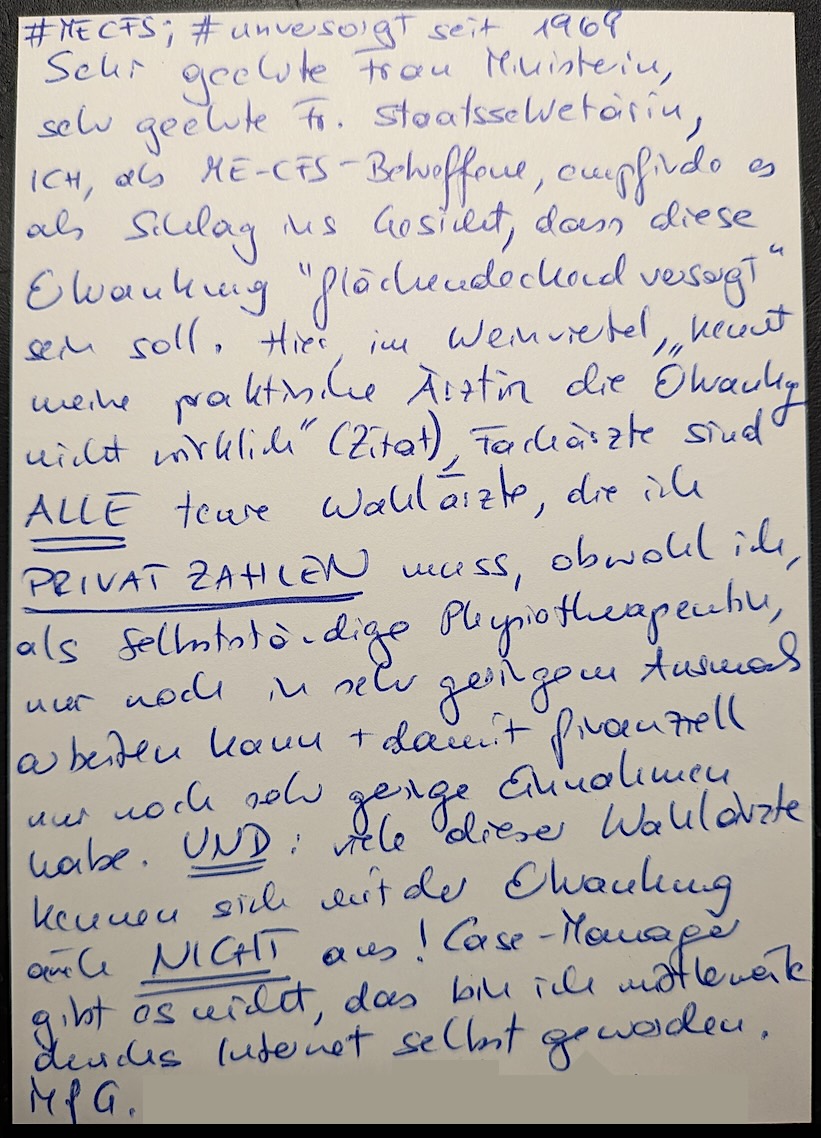 #MECFS; #unversorgt seit 1969
Sehr geehrte Frau Ministerin,
sehr geehrte Fr. Staatssekretärin,
ICH, als ME-CFS-Betroffene, empfinde es
als Schlag ins Gesicht, dass diese
Erkrankung "flächendeckend versorgt"
sein soll. Hier, im Weinviertel, "kennt
meine praktische Ärztin die Erkrankung
nicht wirklich" (Zitat), Fachärzte sind
ALLE teure Wahlärzte, die ich
PRIVAT ZAHLEN muss, obwohl ich,
als selbstständige Physiotherapeutin,
nur noch in sehr geringem Ausmaß
arbeiten kann + damit finanziell
nur noch sehr geringe Einnahmen
habe. UND: viele dieser Wahlärzte
kennen sich mit der Erkrankung
auch NICHT aus! Case-Manager
gibt es nicht, das bin ich mittlerweile
durchs Internet selbst geworden.
MfG.